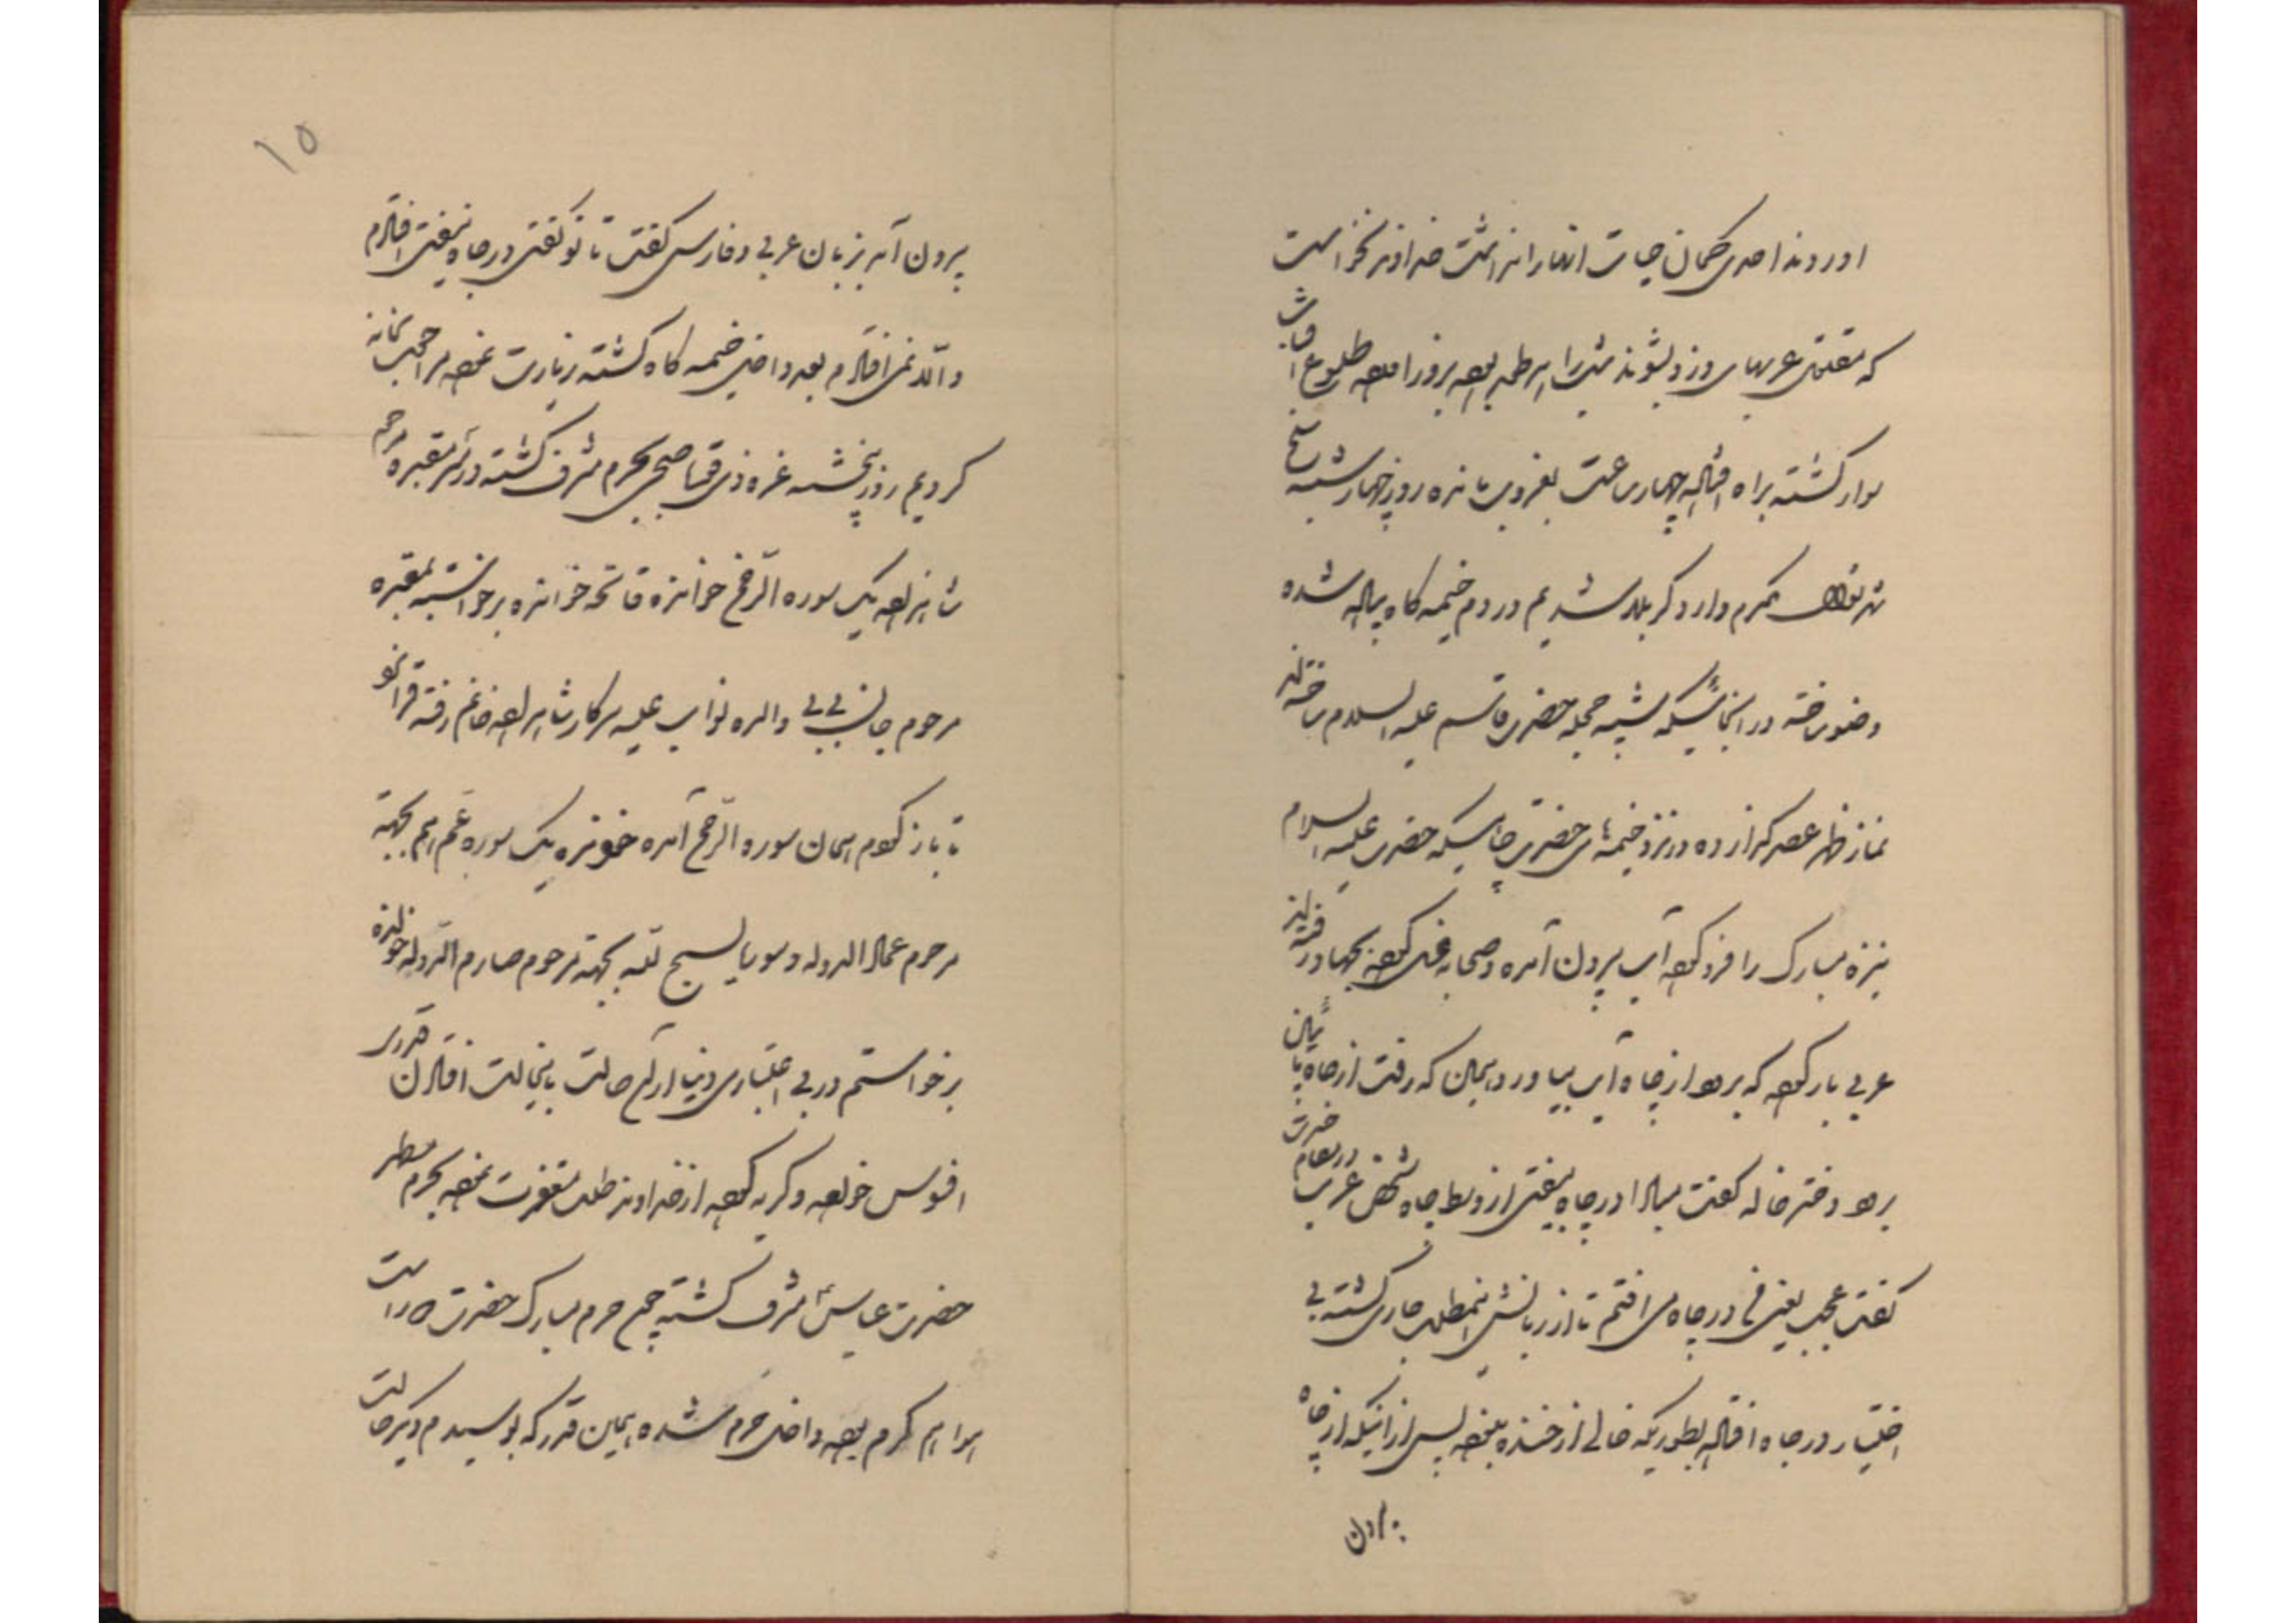 اوردند احدی گمان حیات آنها را نداشت خداوند نخواست
که معتلی عربهای دزد بشوند شب را در طمه بوده بروز آمده طلوع آفتاب
سوار گشته براه افتاده چهار ساعت بغروب مانده روز چهارشنبه سلخ
شهر مکرم وارد کربلا شدیم در دم خیمه گاه پیاده شده
وضو ساخته در اینجائیکه شبیه حجله حضرت قاسم علیه السلام ساخته‌اند
نماز ظهر عصر گزارده در نزد خیمه‌های حضرت جائیکه حضرت علیه السلام
نیزه مبارک را فرو کرده آب بیرون آمده و صحابه غسل کرده بجهاد رفته‌اند
عربی بار کرده که برود از چاه آب بیاورد همین که رفت از چاه پائین
برود دختر خاله گفت مبادا در چاه بیفتی از وسط چاه شخص عرب در مقام حضرت
گفت عجب یعنی فی در چاه می افتم تا از زبانش اینمطلب جاری گشته بی
اختیار در چاه افتاد بطوریکه خالی از خنده نبوده پس از اینکه از چاه
بیرون
۱۵
بیرون آمد بزبان عربی و فارسی گفت تا تو گفتی در چاه نیفتی افتادم
والا نمی افتادم بعد داخل خیمه گاه گشته زیارت نموده مراجعت بخانه
کردیم روز پنجشنبه غره ذی قعده صبحی بحرم مشرف گشته در سر مقبره مرحوم
شاهزاده یک سوره الرحمن خوانده فاتحه خوانده برخواسته بمقبره
مرحوم جان بی بی والده نواب علیه سرکار شاهزاده خانم رفته قرائت
تا باز گردم همان سوره الرحمن آمده خوانده یک سوره عم هم بجهته
مرحوم عماد الدوله و سوره یسبح لله بجهته مرحوم صارم الدوله خوانده
برخواستم در بی اعتباری دنیا از آن حالت باینحالت افتادن قدری
افسوس خورده و گریه کرده از خداوند طلب مغفرت نموده بحرم مطهر
حضرت عباس مشرف گشته چون حرم مبارک حضرت در است
هوا هم گرم بوده داخل حرم شده همین قدر که بوسیدم دیگر حالت